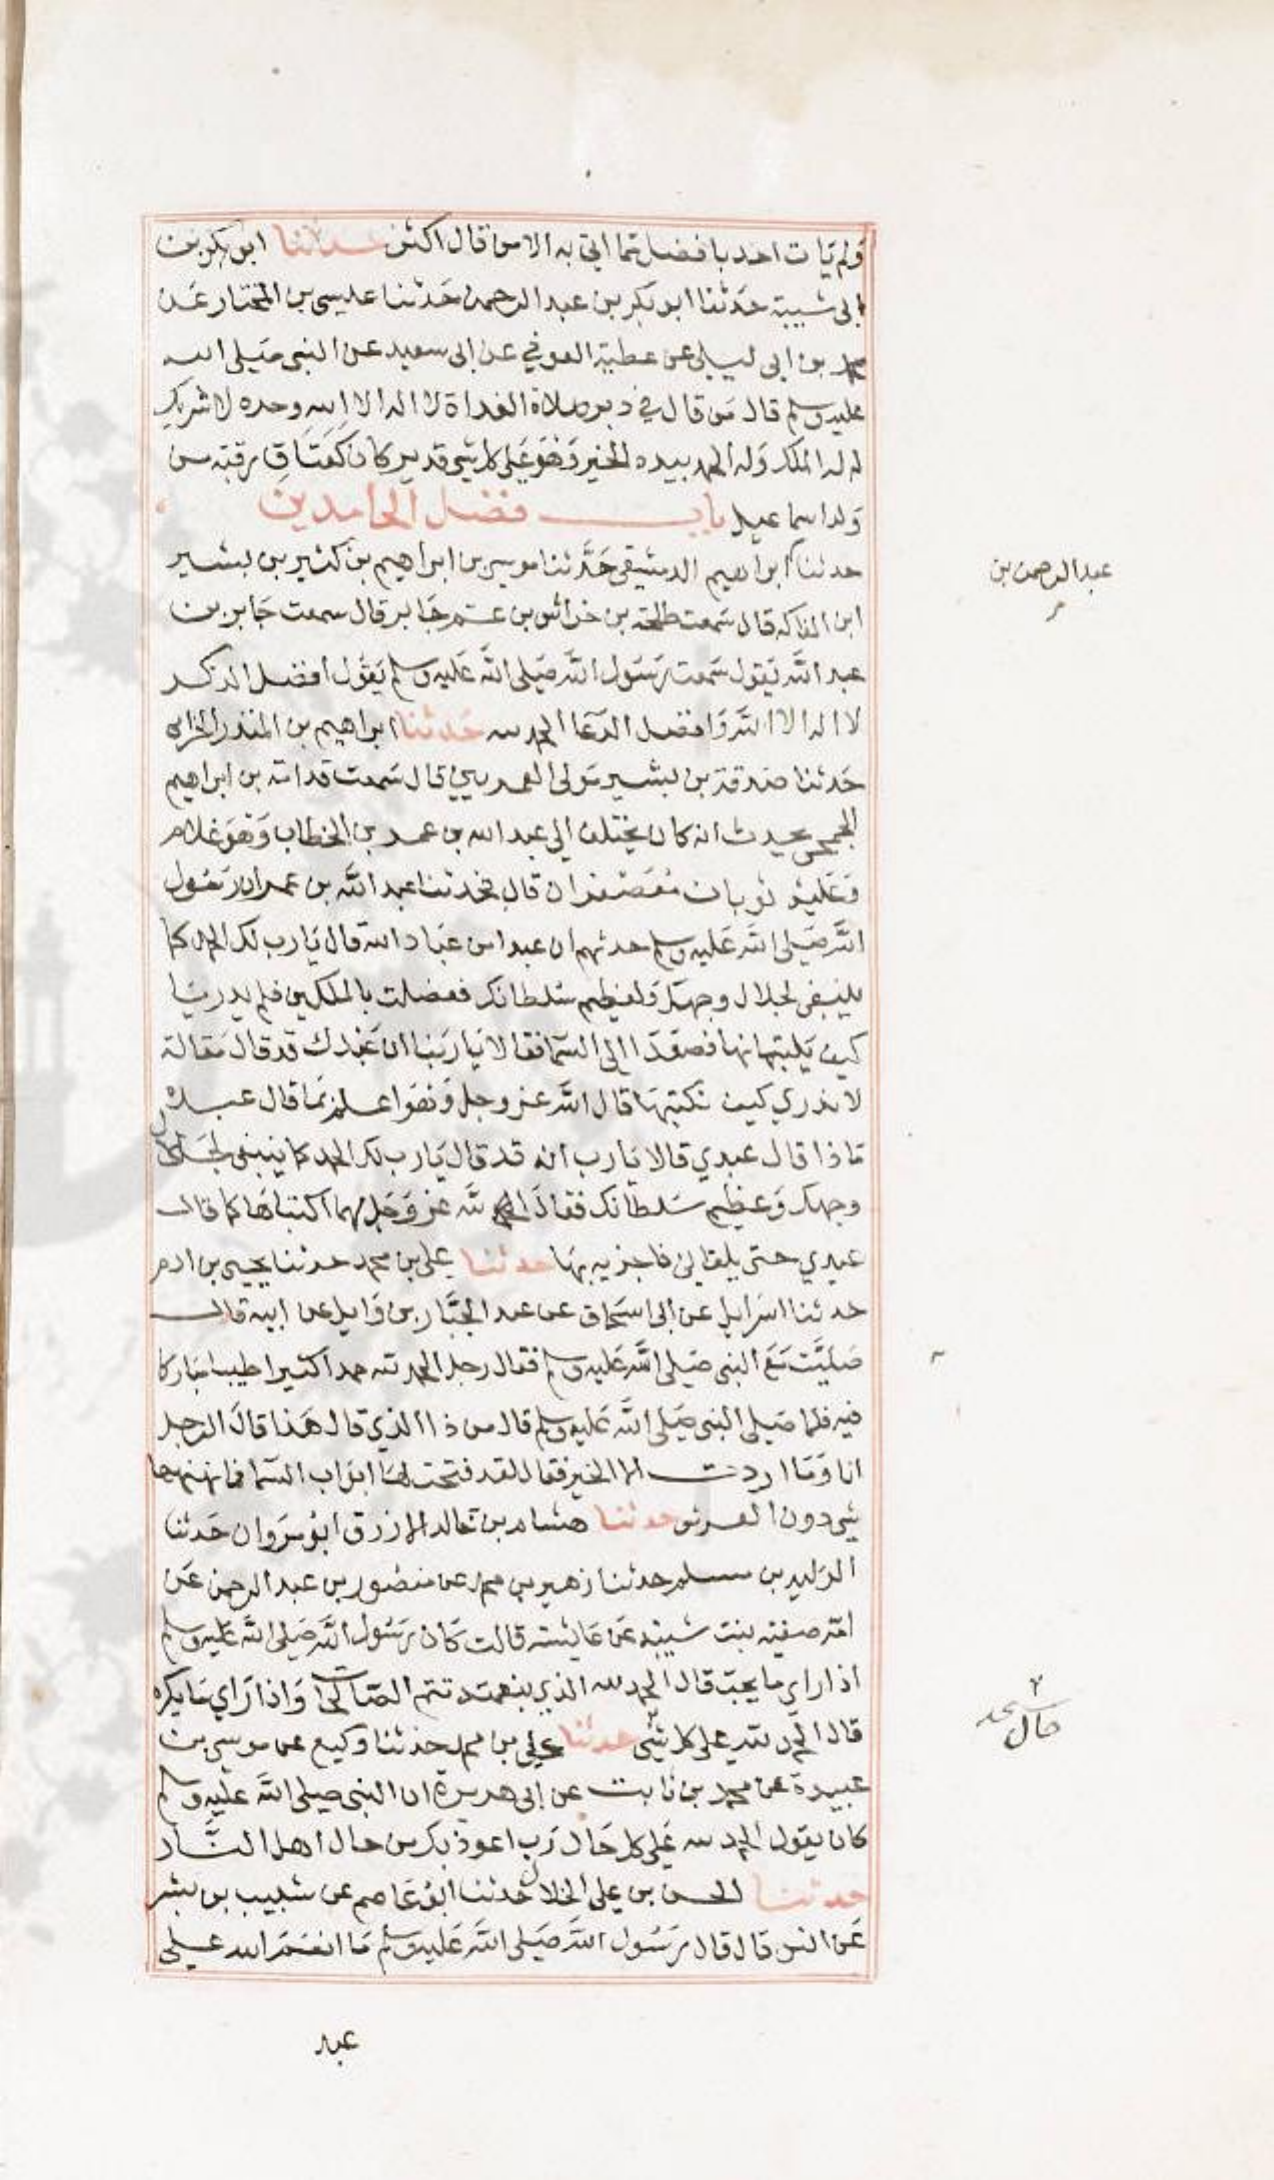 ولم يات احد بافضل مما اتى به الا من قال اكثر حدثنا ابو بكر بن
ابي شيبة حدثنا ابو بكر بن عبد الرحمن حدثنا عيسى بن المختار عن
محمد بن ابي ليلى عن عطية العوفي عن ابي سعيد عن النبي صلى الله
عليه وسلم قال من قال في دبر صلاة الغداة لا اله الا الله وحده لا شريك
له له الملك وله الحمد بيده الخير وهو على كل شي قدير كان كعتاق رقبة من
ولد اسماعيل باب فضل الحامدين
حدثنا ابراهيم الدمشقي حدثنا موسى بن ابراهيم بن كثير بن بشير
عبد الرحمن بن
ابن الفاكه قال سمعت طلحة بن خراش بن عم جابر قال سمعت جابر بن
عبد الله يقول سمعت رسول الله صلى الله عليه وسلم يقول افضل الذكر
لا اله الا الله وافضل الدعا الحمد لله حدثنا ابراهيم بن المنذر الحزامي
حدثنا صدقة بن بشير مولى العمريين قال سمعت قدامة بن ابراهيم
الجمحي يحدث انه كان يختلف الى عبد الله بن عمر بن الخطاب وهو غلام
وعليه ثوبان معصفران قال فحدثنا عبد الله بن عمر ان رسول
الله صلى الله عليه وسلم حدثهم ان عبدا من عباد الله قال يارب لك الحمد كما
ينبغي لجلال وجهك ولعظيم سلطانك فعضلت بالملكين فلم يدريا
كيف يكتبانها فصعدا الى السما فقالا يا ربنا ان عبدك قد قال مقالة
لا ندري كيف نكتبها قال الله عز وجل وهو اعلم بما قال عبده
ماذا قال عبدي قالا يارب انه قد قال يارب لك الحمد كما ينبغي لجلال
وجهك وعظيم سلطانك فقال الله عز وجل لهما اكتباها كما قال
عبدي حتى يلقاني فاجزيه بها حدثنا علي بن محمد حدثنا يحيى بن ادم
حدثنا اسرايل عن ابي اسحاق عن عبد الجبار بن وايل عن ابيه قال
صليت مع النبي صلى الله عليه وسلم فقال رجل الحمد لله حمدا كثيرا طيبا مباركا
فيه فلما صلى النبي صلى الله عليه وسلم قال من ذا الذي قال هذا قال الرجل
انا وما اردت الا الخير فقال لقد فتحت لها ابواب السما فما نهنهها
شي دون العرش حدثنا هشام بن خالد الازرق ابو مروان حدثنا
الوليد بن مسلم حدثنا زهير بن محمد عن منصور بن عبد الرحمن عن
امه صفية بنت شيبة عن عايشة قالت كان رسول الله صلى الله عليه وسلم
اذا راى ما يحب قال الحمد لله الذي بنعمته تتم الصالحات واذا راى ما يكره
قال الحمد لله على كل شي حدثنا علي بن محمد حدثنا وكيع عن موسى بن
حال
عبيدة عن محمد بن ثابت عن ابي هريرة ان النبي صلى الله عليه وسلم
كان يقول الحمد لله على كل حال رب اعوذ بك من حال اهل النار
حدثنا الحسن بن علي الخلال حدثنا ابو عاصم عن شبيب بن بشر
عن انس قال قال رسول الله صلى الله عليه وسلم ما انعم الله على
عبد